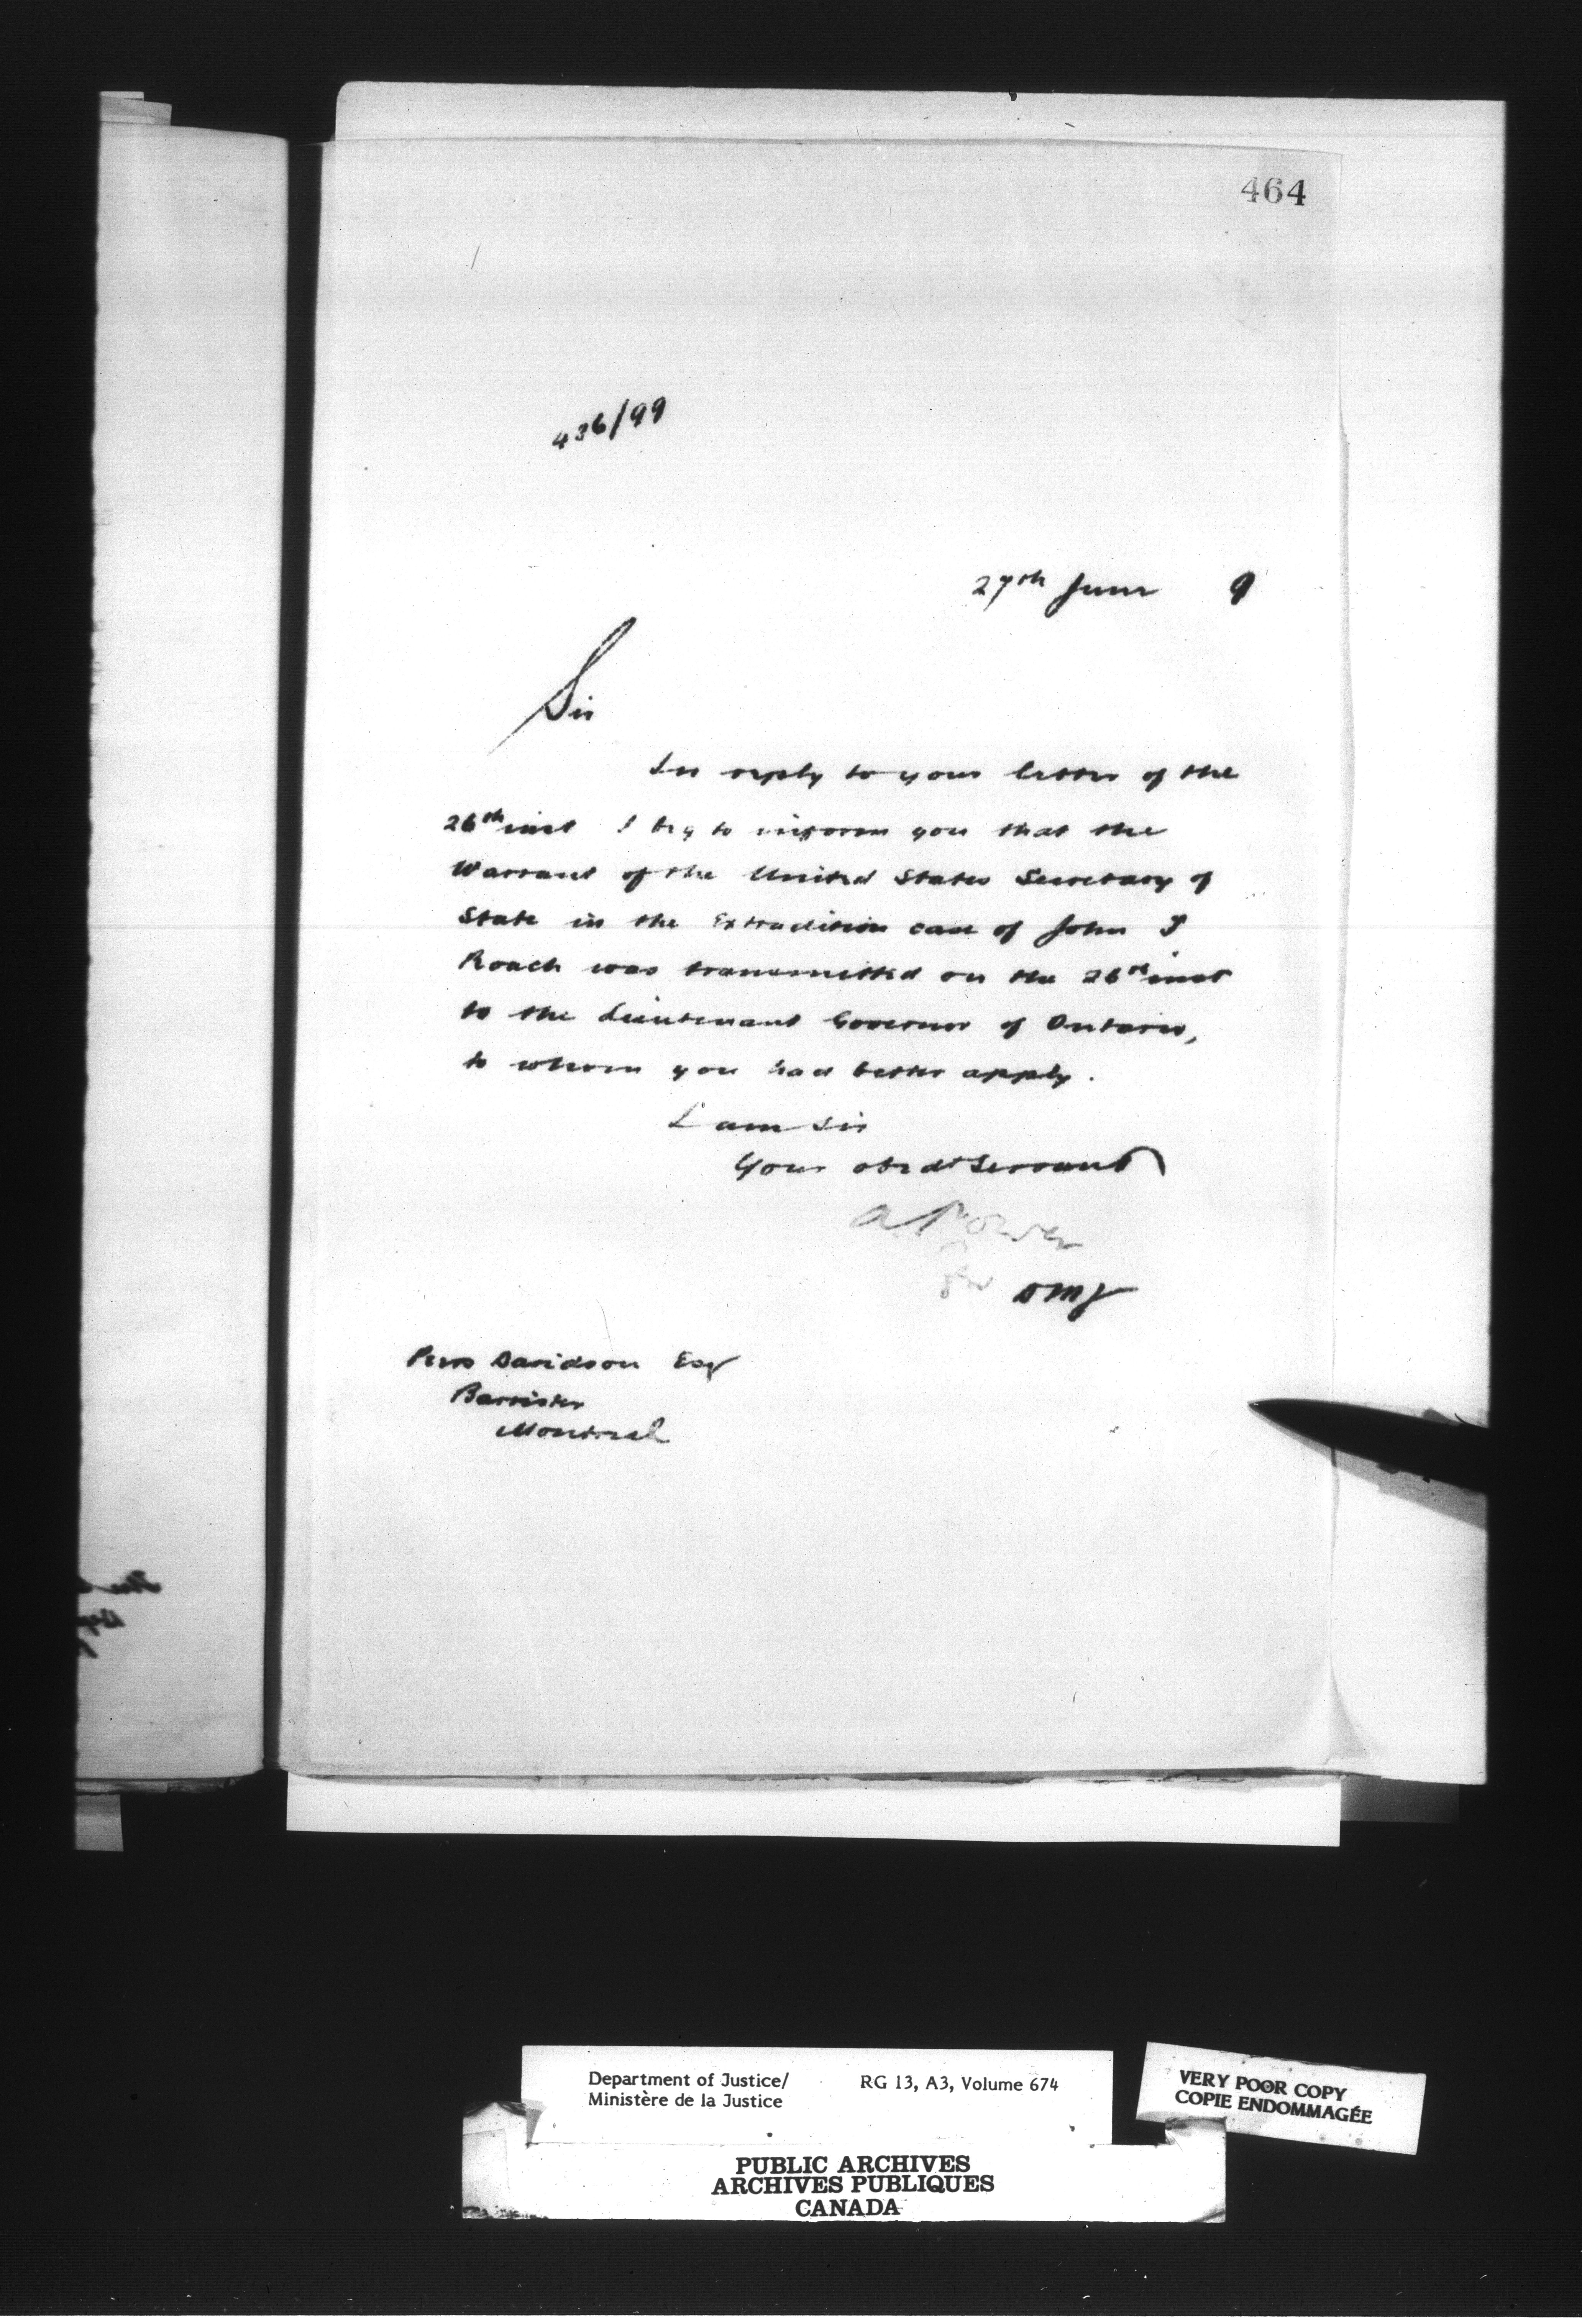 464
436/99
27th June 9
Sir
In reply to your letter of the
26th inst I beg to inform you that the
Warrant of the United States Secretary of
State in the Extradition case of John
Roach was transmitted on the 26th inst
to the Lieutenant Governor of Ontario,
to whom you had better apply.
I am Sir
Your obedt Servant
A Power
for DMJ
Davidson Esq
Barrister
Montreal
Department of Justice/
Ministère de la Justice
RG 13, A3, Volume 674
VERY POOR COPY
COPIE ENDOMMAGÉE
PUBLIC ARCHIVES
ARCHIVES PUBLIQUES
CANADA